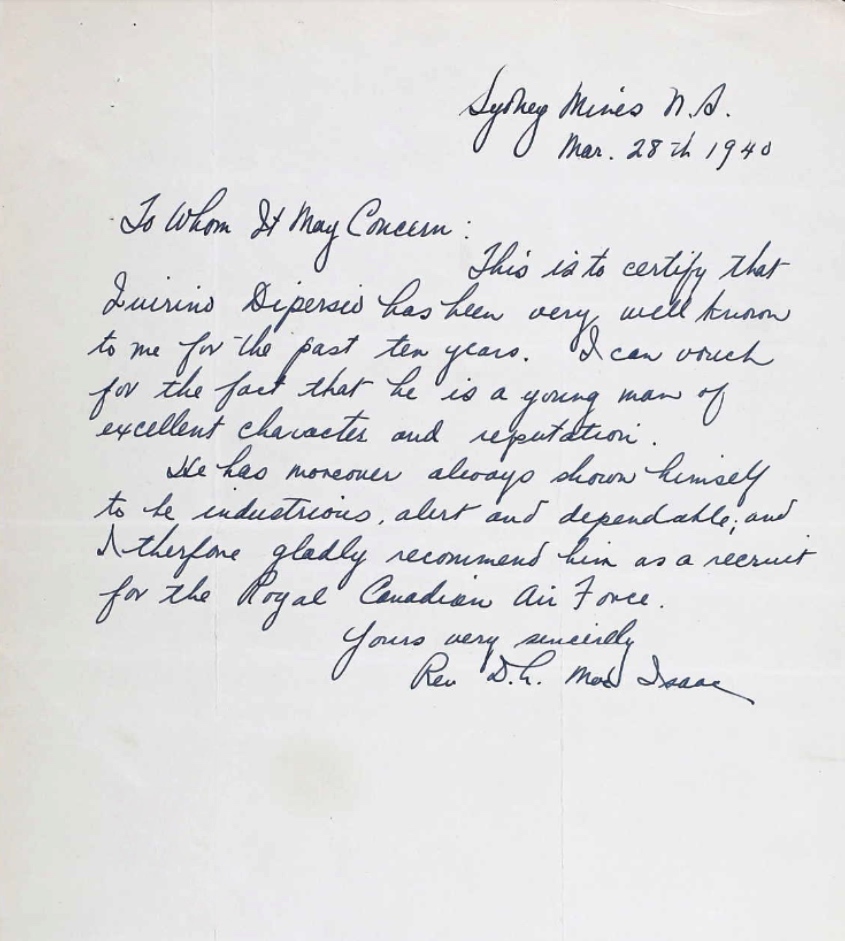 Sydney Mines N.S.
Mar. 28th 1940
To Whom It May Concern:
This is to certify that
Quirino Dipersio has been very well known
to me for the past ten years. I can vouch
for the fact that he is a young man of
excellent character and reputation.
He has moreover always shown himself
to be industrious, alert and dependable; and
I therfore gladly recommend him as a recruit
for the Royal Canadian Air Force.
Yours very sincerely
Rev D.L. Mac Isaac